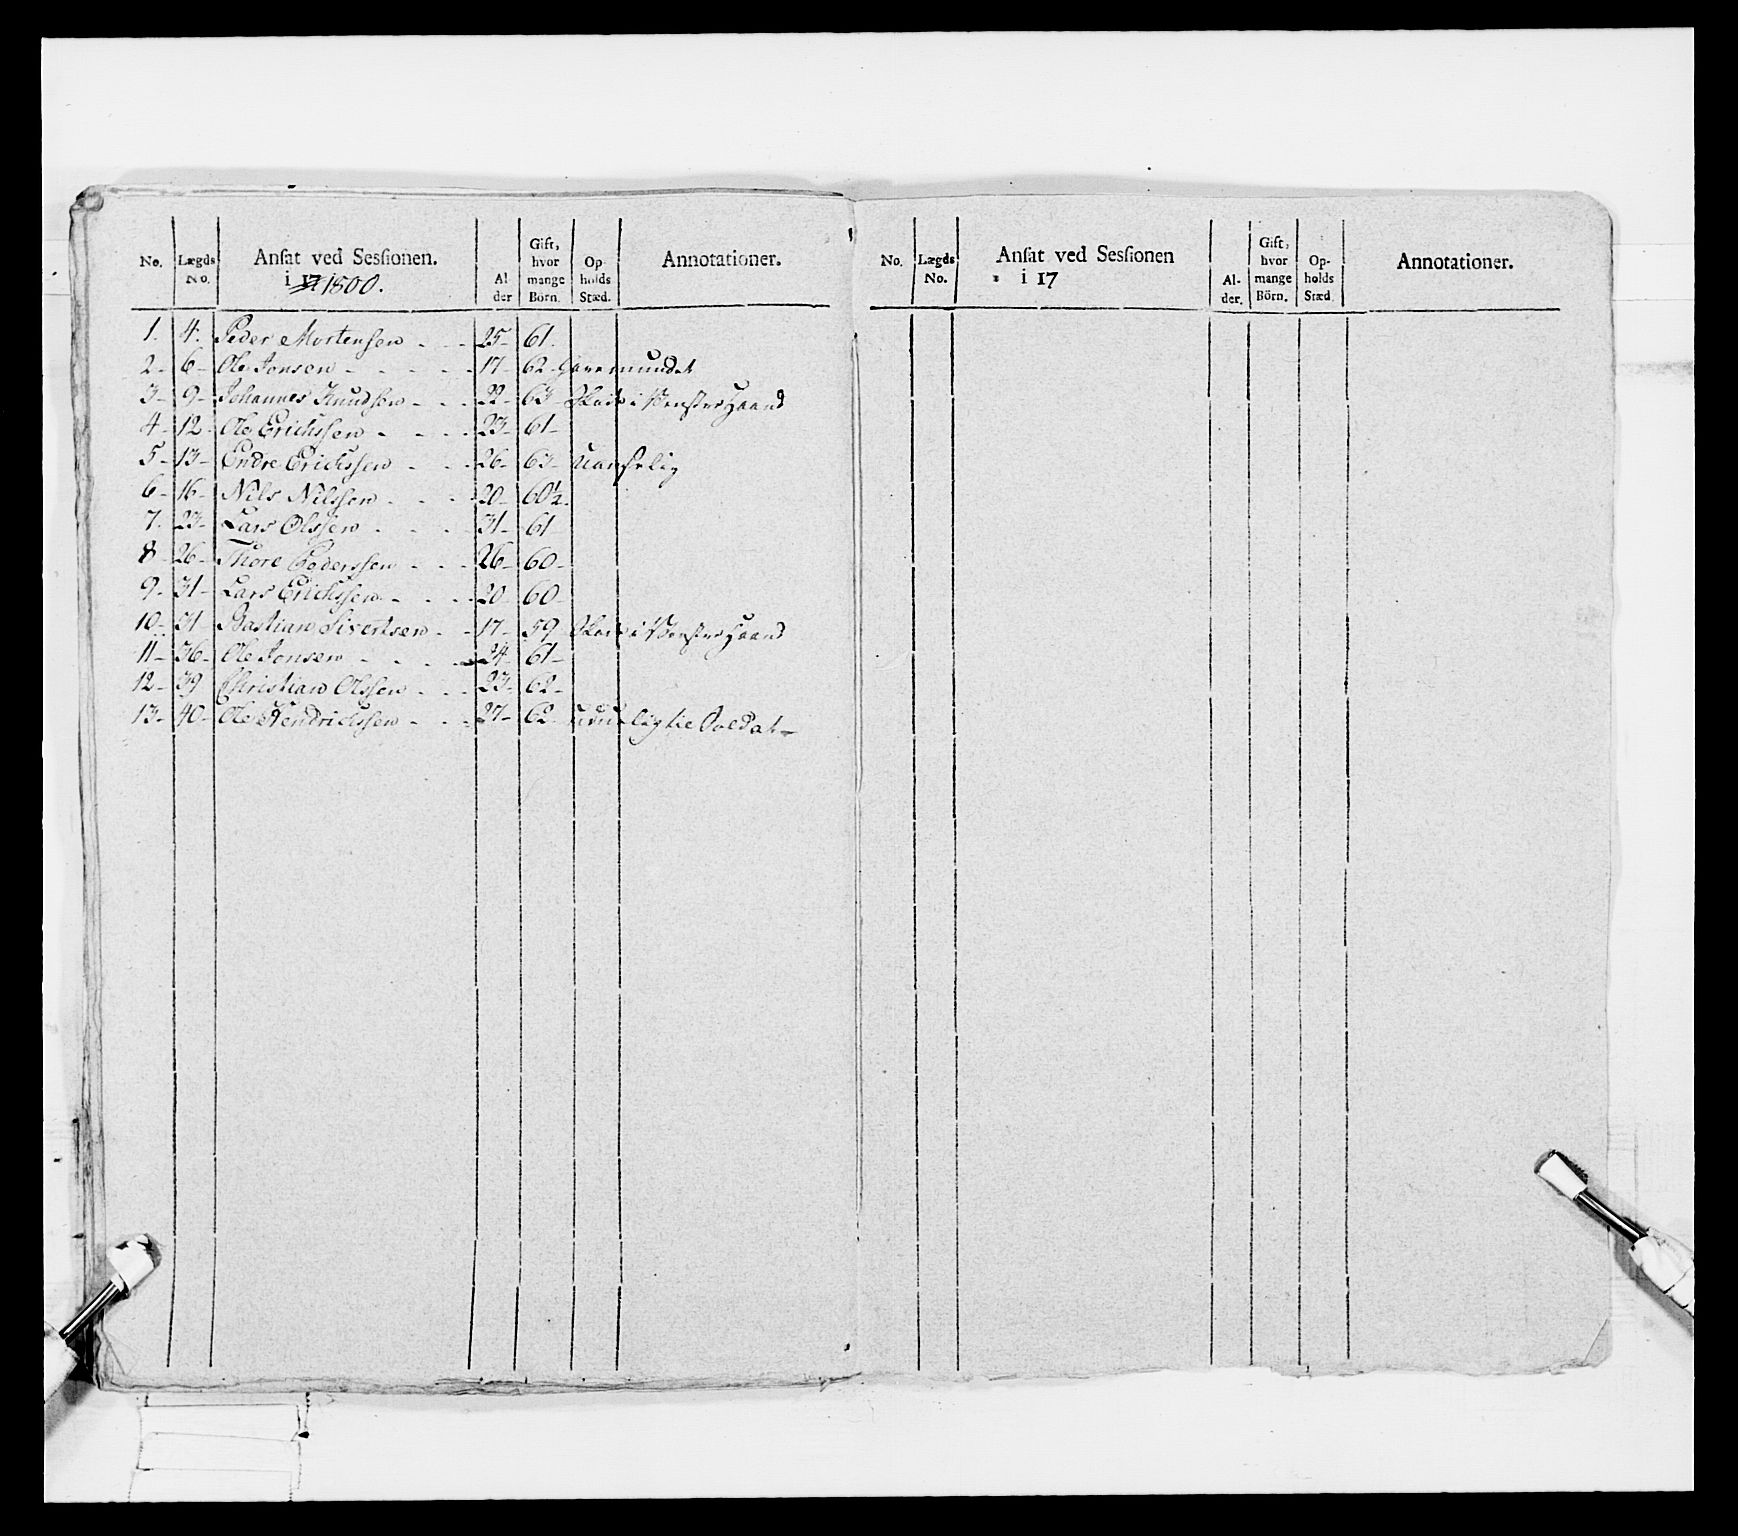 No. Lægds No. Ansat ved Sessionen. i 17 1800. Al der Gift, hvor mange Börn. Op holds Stæd. Annotationer.
1. 4. Peder Mortensen - - 25- 61.
2- 6- Ole Jonsen - - - - - 17- 62-
3- 9- Johannes Knudsen - - - 22- 63- Skade i Venstre Haand
4- 12- Ole Erichssen - - - - 23- 61-
5- 13- Endre Erichssen - - - 26- 63- Uanselig
6- 16- Nils Nilssen - - - - 20- 60½-
7. 23- Lars Olssen - - - - 31- 61
8- 26- Thore Pederssen - - - 26- 60-
9- 31- Lars Erichssen - - - - 20- 60-
10- 31 Bastian Sivertsen - - 17- 59 Skade i Venstre Haand
11- 36- Ole Jonsen - - - - 24- 61-
12- 39 Christian Olssen - - - 23- 62-
13- 40- Ole Hendrichssen - - - 27- 62- Soldat-
No. Lægds No. Ansat ved Sessionen i 17 Al- der. Gift, hvor mange Börn. Op- holds Stæd. Annotationer.